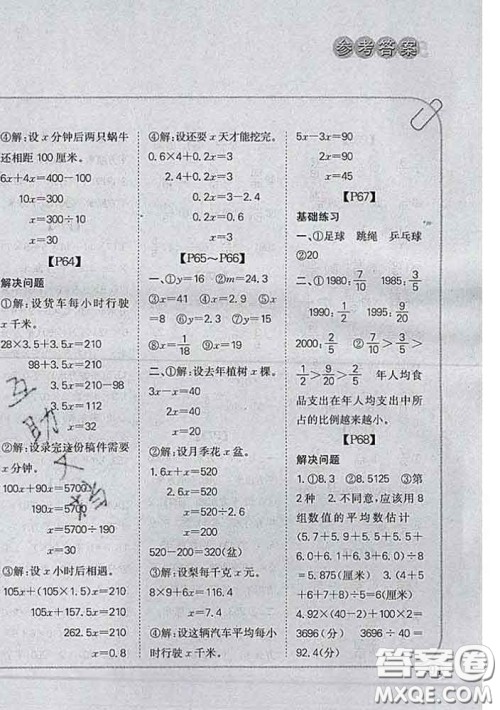 参考答案
④解:设 x 分钟后两只蜗牛
还相距 100 厘米。
6x+4x=400-100
10x=300
x=300÷10
x=30
【P64】
解决问题
①解:设货车每小时行驶
x 千米。
28×3.5+3.5x=210
98+3.5x=210
3.5x=210-98
3.5x=112
x=32
②解:设录完这份稿件需要
x 分钟。
100x+90x=5700
190x=5700
x=5700÷190
x=30
③解:设 x 小时后相遇。
105x+(105×1.5)x=210
105x+157.5x=210
262.5x=210
x=0.8
④解:设还要 x 天才能挖完。
0.6×4+0.2x=3
2.4+0.2x=3
0.2x=3-2.4
0.2x=0.6
x=3
【P65~P66】
一、①y=16 ②m=24.3
③x=41 ④x=9 ⑤x=6
⑥x=1/18 ⑨x=19
二、①解:设去年植树 x 棵。
3x-x=40
2x=40
x=20
②解:设月季花 x 盆。
1.6x=520
x=520÷1.6
x=325
520-200=320(盆)
③解:设梨每千克 x 元。
8×9+6x=116.4
x=7.4
④解:设这辆汽车平均每小
时行驶 x 千米。
5x-3x=90
2x=90
x=45
【P67】
基础练习
一、①足球 跳绳 乒乓球
②20
二、①1980:7/10 1985:3/5
1990:1/2 1995:9/20
2000:2/5 ②7/10>3/5>
1/2>9/20>2/5 年人均食
品支出在年人均支出中所
占的比例越来越小。
【P68】
解决问题
1.①8.3 ②8.5125 ③第
2种 2.不同意,应该用8
组数值的平均数估计
(5.7+5.9+5.5+5.3+
6.0+6.3+6.0+6.3)÷8
=5.875(厘米) 3.(4+5
+6+7+8)÷5=6(厘米)
4.92×(40-4)+100×2=
3696(分) 3696÷40=
92.4(分)
互助文档
答案圈
MXQE.COM